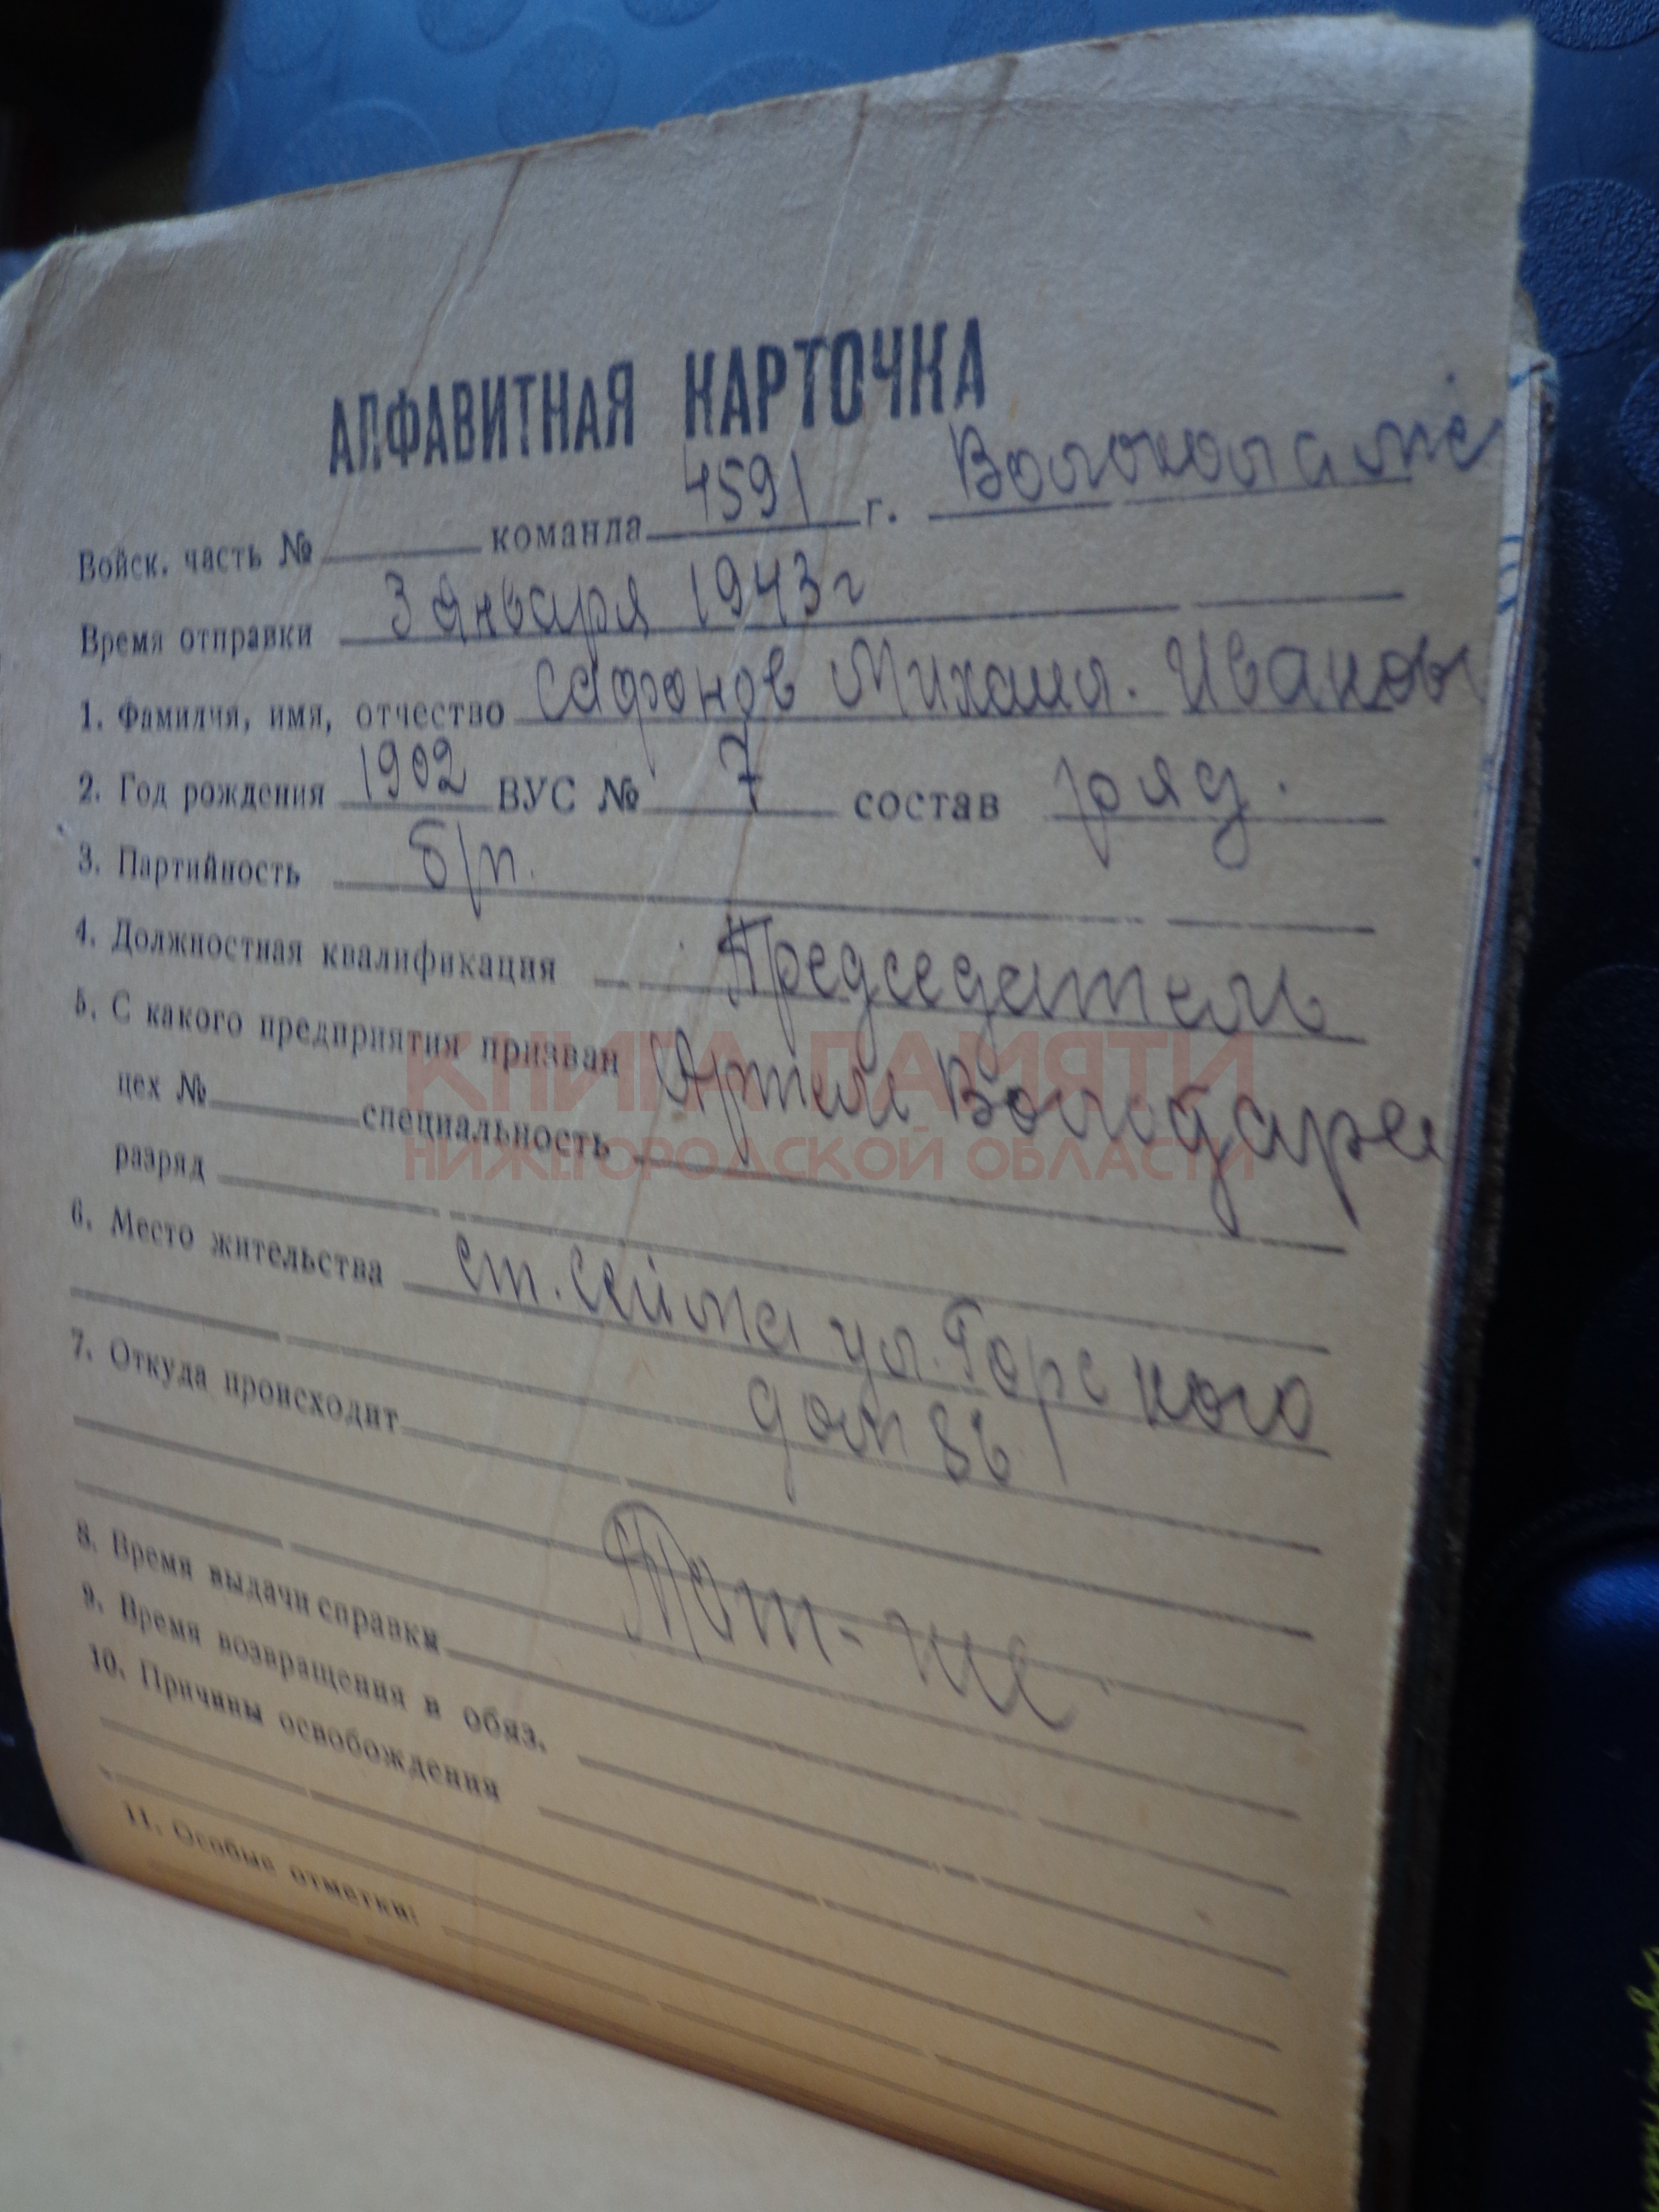 АЛФАВИТНАЯ КАРТОЧКА
Войск. часть № команда 4591 г. Волоколамс
Время отправки 3 января 1943 г
1. Фамилия, имя, отчество Сафонов Михаил. Иванов
2. Год рождения 1902 ВУС № 7 состав ряд.
3. Партийность б/п.
4. Должностная квалификация Председатель
5. С какого предприятия призван Артели Володаре
цех № специальность
разряд
КНИГА ПАМЯТИ
НИЖЕГОРОДСКОЙ ОБЛАСТИ
6. Место жительства ст. Сейма ул. Горского
дом 86
7. Откуда происходит
8. Время выдачи справки
9. Время возвращения в обяз.
10. Причины освобождения
11. Особые отметки: